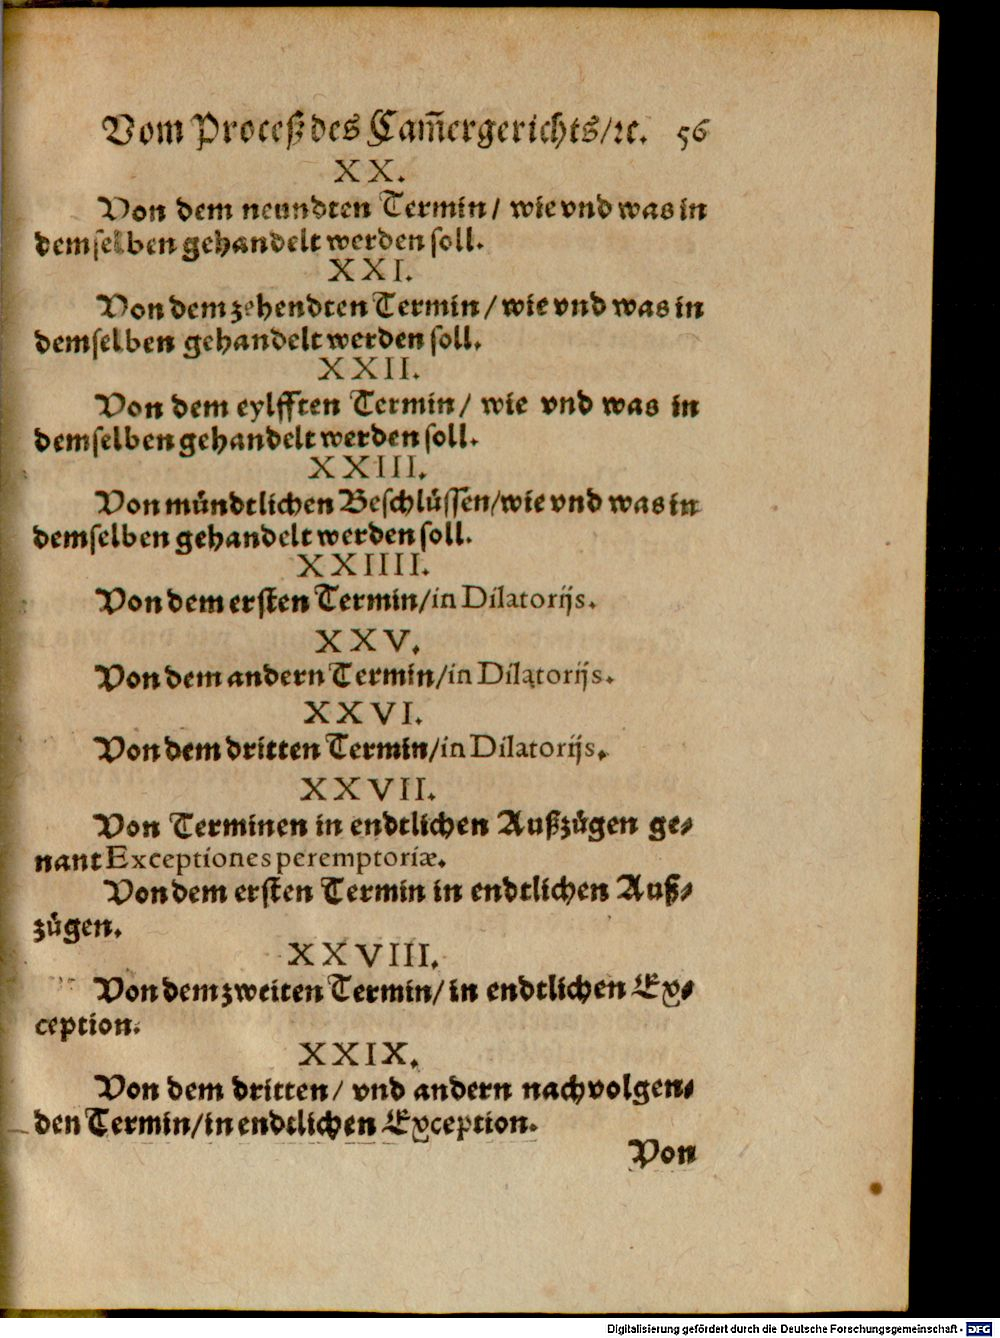 Vom Proceß des Cam̃ergerichts/ꝛc. 56
XX.
Von dem neundten Termin/ wie vnd was in
demselben gehandelt werden soll.
XXI.
Von dem zehendten Termin/ wie vnd was in
demselben gehandelt werden soll.
XXII.
Von dem eylfften Termin/ wie vnd was in
demselben gehandelt werden soll.
XXIII.
Von mündtlichen Beschlüssen/wie vnd was in
demselben gehandelt werden soll.
XXIIII.
Von dem ersten Termin/in Dilatorijs.
XXV.
Von dem andern Termin/in Dilatorijs.
XXVI.
Von dem dritten Termin/in Dilatorijs.
XXVII.
Von Terminen in endtlichen Außzügen ge⸗
nant Exceptiones peremptoriæ.
Von dem ersten Termin in endtlichen Auß⸗
zügen.
XXVIII.
Von dem zweiten Termin/ in endtlichen Ex⸗
ception.
XXIX.
Von dem dritten/ vnd andern nachvolgen⸗
den Termin/in endtlichen Exception.
Von
Digitalisierung gefördert durch die Deutsche Forschungsgemeinschaft - DFG